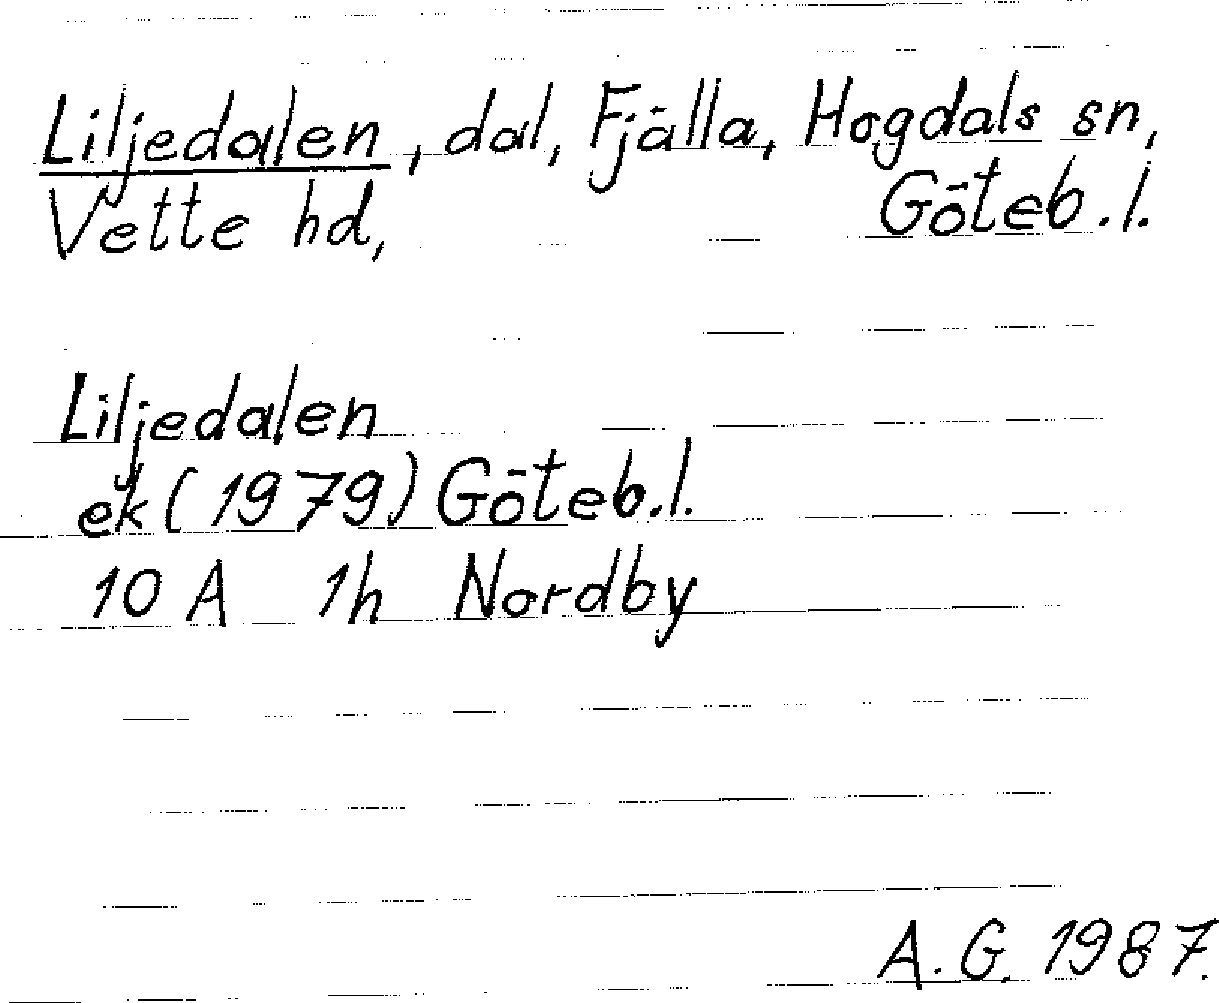 Liljedalen, dal, Fjälla, Hogdals sn,
Vette hd, Göteb.l.
Liljedalen
ek (1979) Göteb.l.
10 A 1h Nordby
A.G. 1987.